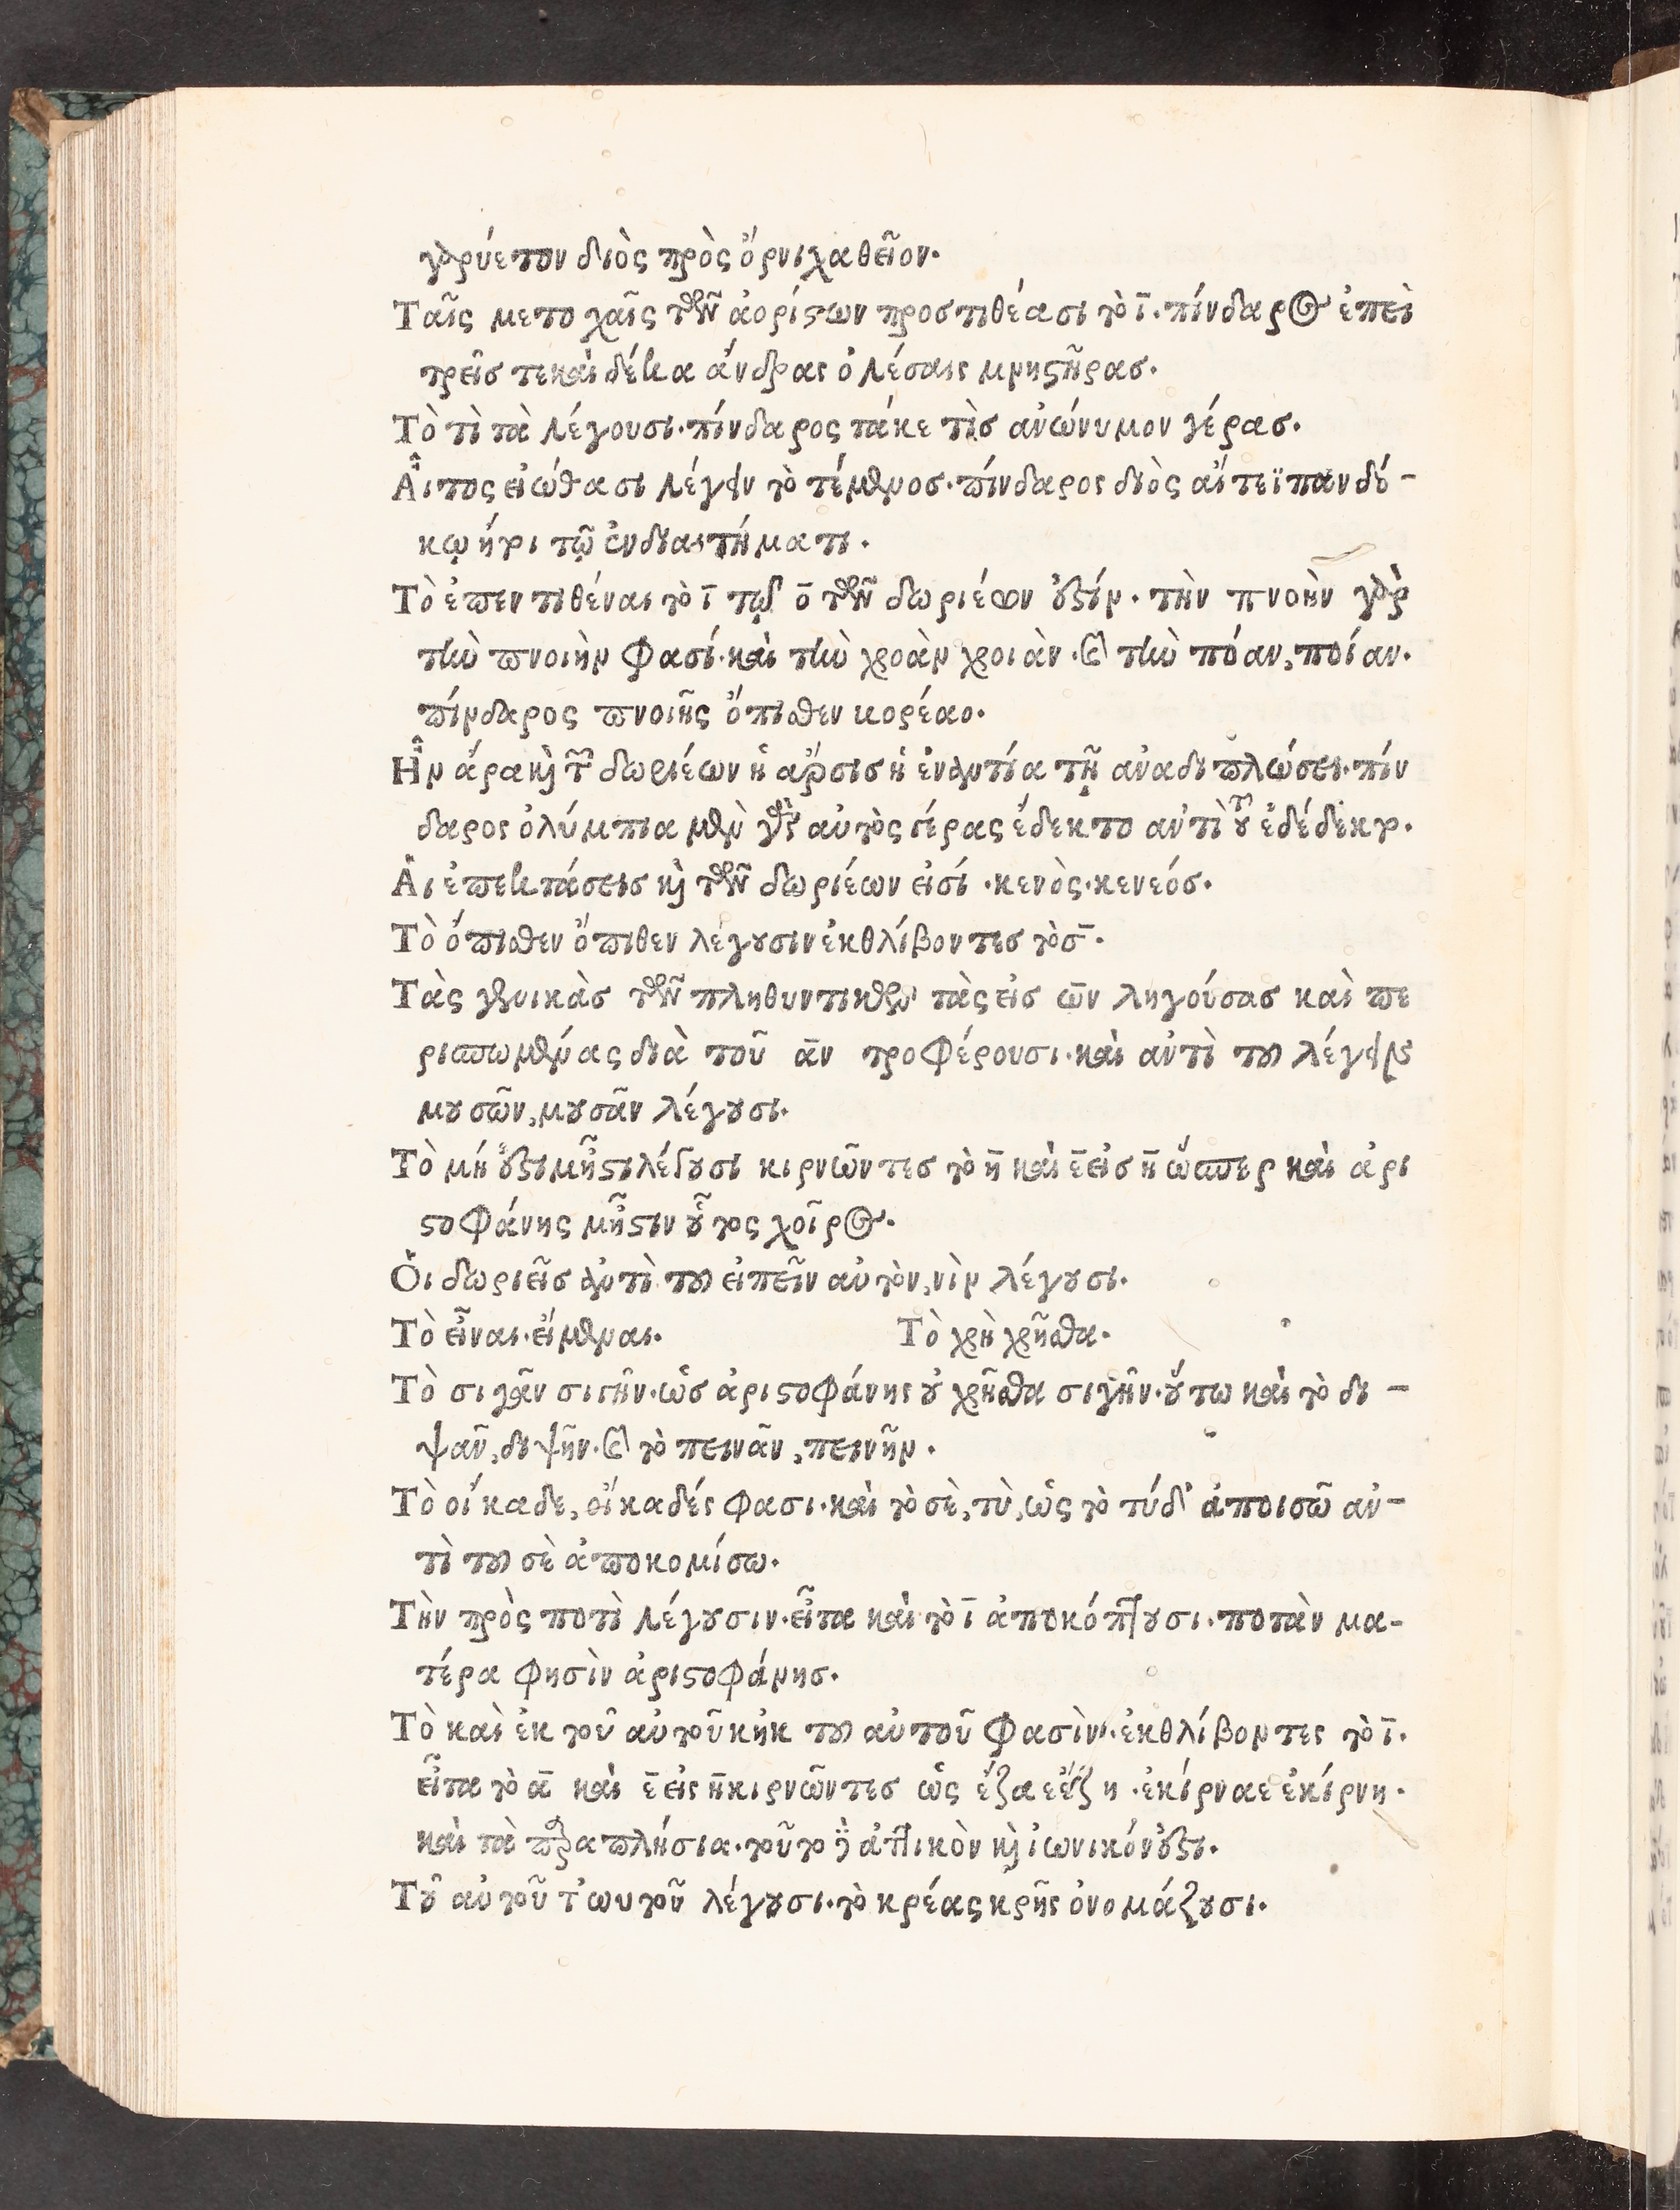 γαρύετον διὸς πρὸς ὄρνιχα θεῖον.
Ταῖς μετοχαῖς τῶν ἀορίστων προστιθέασι τὸ ῑ. πίνδαρος ἐπεὶ
τρεῖσ τε καὶ δέκα ἄνδρας ὀλέσαις μνηστῆρασ.
Τὸ τὶ τὰ λέγουσι. πίνδαρος τάκε τὶσ ἀνώνυμον γέρασ.
Ἆιτος εἰώθασι λέγειν τὸ τέμενοσ. πίνδαρος διὸς αἴτεϊ πανδό-
κῳ ἤρι τῷ ἐνδιαστήματι.
Τὸ ἐπεντιθέναι τὸ ῑ τῷ ο̄ τῶν δωριέων ἐστίν. τὴν πνοὴν γὰρ
τὴν πνοιὴν φασί. καὶ τὴν χροὰν χροιὰν. καὶ τὴν πόαν, ποίαν.
πίνδαρος πνοιῆς ὄπιθεν κορέαο.
Ἦν ἄρα καὶ τῶν δωριέων ἡ ἄρσισ ἡ ἐναντία τῇ ἀναδιπλώσει. πίν
δαρος ὀλύμπια μὲν γὰρ αὐτὸς γέρας ἔδεκτο ἀντὶ τοῦ ἐδέδεκτο.
Ἁι ἐπεκτάσεισ καὶ τῶν δωριέων εἰσί. κενὸς. κενεόσ.
Τὸ ὄπισθεν ὄπιθεν λέγουσιν ἐκθλίβοντεσ τὸ σ̄.
Τὰς γενικὰσ τῶν πληθυντικῶν τὰς εἰσ ω̄ν ληγούσασ καὶ πε
ρισπωμένας διὰ τοῦ ᾱν προφέρουσι. καὶ ἀντὶ τοῦ λέγειν
μουσῶν, μουσᾶν λέγουσι.
Τὸ μή ἐστι μἦστι λέγουσι κιρνῶντεσ τὸ η̄ καὶ ε̄ εἰσ η̄ ὥσπερ καὶ ἀρι
στοφάνης μἦστιν οὗτος χοῖρος.
Ὁι δωριεῖσ ἀντὶ τοῦ εἰπεῖν αὐτὸν, νὶν λέγουσι.
Τὸ εἶναι. εἴμεναι. Τὸ χρὴ χρῆσθα.
Τὸ σιγᾶν σιγῆν. ὡσ ἀριστοφάνης οὐ χρῆσθα σιγῆν. οὕτω καὶ τὸ δι-
ψᾶν, διψῆν. καὶ τὸ πεινᾶν, πεινῆν.
Τὸ οἴκαδε, οἴκαδές φασι. καὶ τὸ σὲ, τὺ, ὡς τὸ τύδ' ἀποισῶ ἀν-
τὶ τοῦ σὲ ἀποκομίσω.
Τὴν πρὸς ποτὶ λέγουσιν. εἶτα καὶ τὸ ῑ ἀποκόπτουσι. ποτὰν μα-
τέρα φησὶν ἀριστοφάνησ.
Τὸ καὶ ἐκ τοῦ αὐτοῦ κἠκ τοῦ αὐτοῦ φασὶν. ἐκθλίβοντες τὸ ῑ.
εἶτα τὸ ᾱ καὶ ε̄ εἰς η̄ κιρνῶντεσ ὡς ἔζαε ἔζη. ἐκίρναε ἐκίρνη.
καὶ τὰ παραπλήσια. τοῦτο δὲ ἀττικὸν καὶ ἰωνικόν ἐστι.
Τοῦ αὐτοῦ τ' ὠυτοῦ λέγουσι. τὸ κρέας κρῆς ὀνομάζουσι.